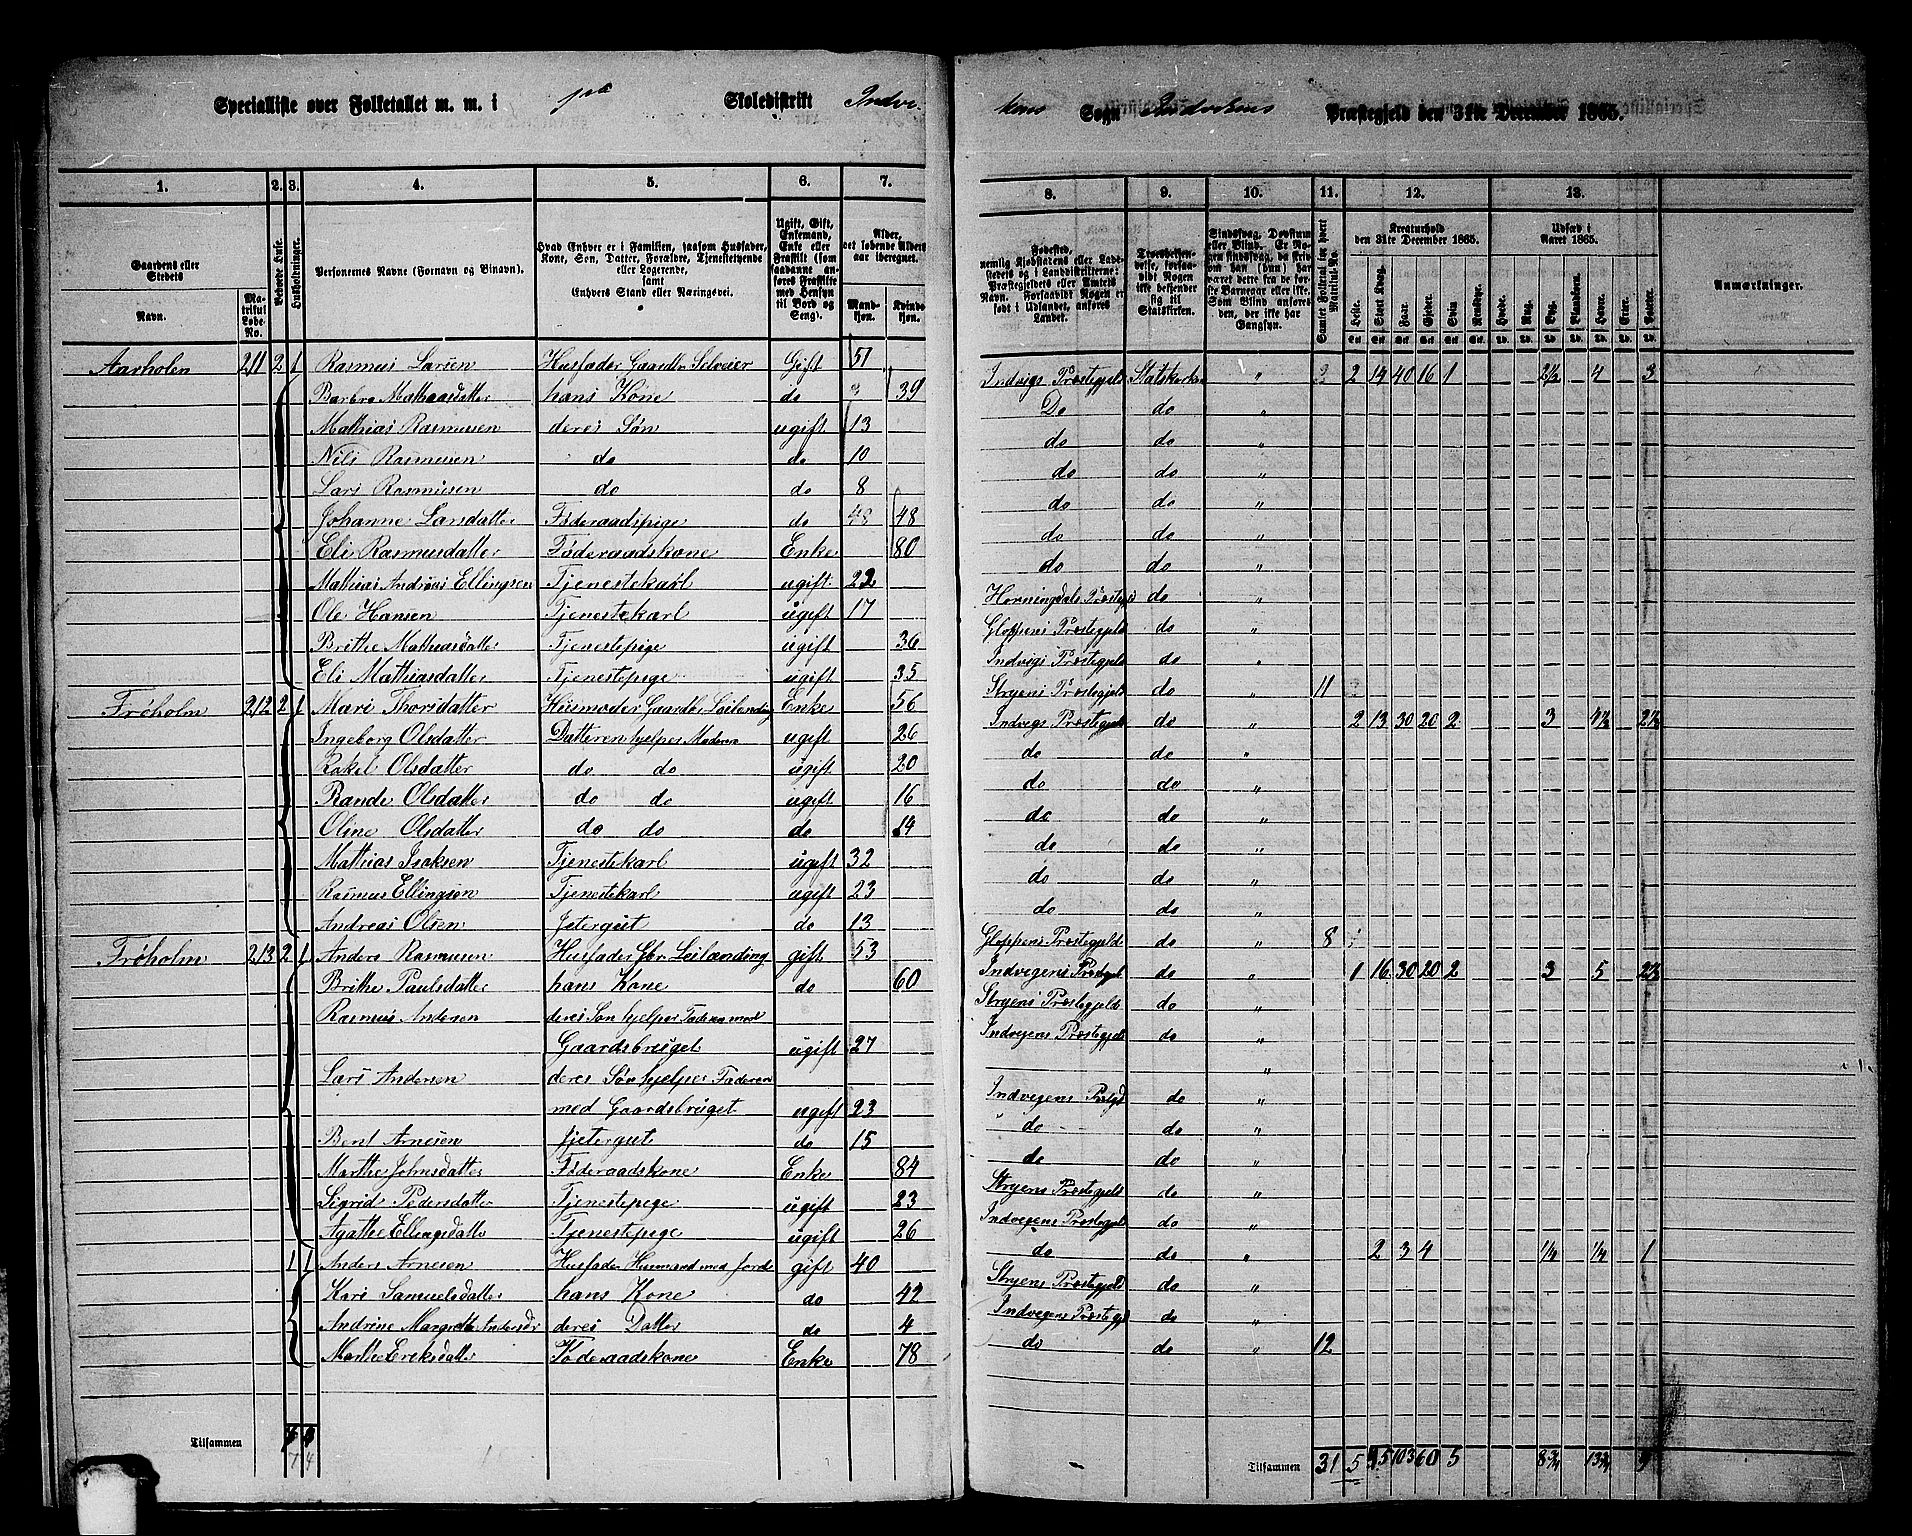 Specialliste over Folketallet m. m. i 1ste Skoledistrikt Indvi-
kens Sogn Indvikens Præstegjeld den 31te December 1865.
1. 2. 3. 4. 5. 6. 7.
8. 9. 10. 11. 12. 13.
Gaardens eller Stedets Navn.
Matrikul Løbe-No.
Beboede Huse.
Husholdninger.
Personernes Navne (Fornavn og Binavn).
Hvad Enhver er i Familien, saasom Husfader, Kone, Søn, Datter, Forældre, Tjenestetyende eller Logerende, samt Enhvers Stand eller Næringsvei.
Ugift, Gift, Enkemand, Enke eller Fraskilt (som saadanne anføres Fraskilte med Hensyn til Bord og Seng).
Alder, det løbende Alders aar iberegnet.
Mandkøn. Kvindekøn.
Anmærkninger.
Kreaturhold den 31te December 1865.
Udsæd i Aaret 1865.
Aarholm 211 2 1 Rasmus Larsen Husfader Gaardbr Selveier Gift 51 Indvigs Præstegjeld Statskirken " 2 14 40 16 1 2½ 4 3
Barbro Mathiasdatter hans Kone do 39 Do do "
Mathias Rasmusen deres Søn ugift 13 do do "
Nils Rasmusen do do 10 do do "
Lars Rasmusen do do 8 do do "
Johanne Larsdatter Føderaadspige do 48 do do "
Eli Rasmusdatter Føderaadskone Enke 80 do do "
Mathias Andreas Ellingsen Tjenestekarl ugift 22 Horningdals Præstegjeld do "
Ole Hansen Tjenestekarl ugift 17 Gloppens Præstegjeld do "
Brithe Mathiasdatter Tjenestepige ugift 36 Indvigs Præstegjeld do "
Eli Mathiasdatter Tjenestepige ugift 35 Stryens Præstegjeld do " 11
Frøholm 212 2 1 Mari Thorsdatter Husmoder Gaardbr Leilending Enke 56 Indvigs Præstegjeld do " 2 13 30 20 2 3 4½ 2½
Ingeborg Olsdatter Datteren hjelper Moderen ugift 26 do do "
Rakel Olsdatter do do ugift 20 do do "
Rande Olsdatter do do ugift 16 do do "
Oline Olsdatter do do do 14 do do "
Mathias Isaksen Tjenestekarl ugift 32 do do "
Rasmus Ellingsen Tjenestekarl ugift 23 do do "
Andreas Olsen Jetergut do 13 Gloppens Præstegjeld do " 8
Frøholm 213 2 1 Anders Rasmusen Husfader Gbr Leilænding gift 53 Indvegens Præstegjel do " 1 16 30 20 2 3 5 2½
Brithe Paulsdatter hans Kone do 60 Stryens Præstegjeld do "
Rasmus Andersen deres Søn hjelper Faderen med Indvegens Præstegjeld do "
Gaardsbruget ugift 27
Lars Andersen deres Søn hjelper Faderen
med Gaardsbruget ugift 23 Indvegens Præstegjd do "
Bent Arnesen Jjetergut do 15 do do "
Marthe Johnsdatter Føderaadskone Enke 84 do do "
Sigrid Pedersdatter Tjenestepige ugift 23 Stryens Præstegjeld do "
Agathe Ellingsdatte Tjenestepige ugift 26 Indvegens Præstegjeld do "
1 1 Anders Arnesen Husfader Husmand med Jord gift 40 do do " 2 3 4 ¼ ¼ 1
Kari Samuelsdatter hans Kone do 42 Stryens Præstegjeld do "
Andrine Margrethe Andersdr deres Datter do 4 Indvegens Præstegjd do "
Marthe Eriksdatter Føderaadskone Enke 78 do do " 12
Tilsammen 7 4
Tilsammen 31 5 45 103 60 5 8¾ 13¾ 9